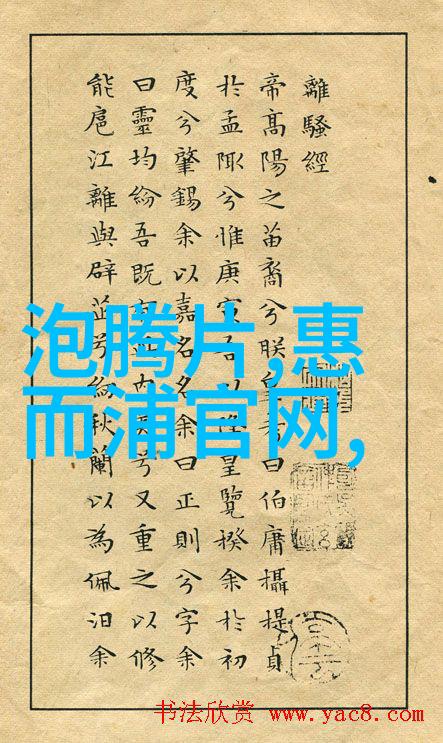 離騷經
帝高陽之苗裔兮朕皇考曰伯庸攝提貞
於孟陬兮惟庚寅吾以降皇覽揆余於初
度兮肇錫余以嘉名名余曰正則兮字余
曰靈均紛吾既有此內美兮又重之以修
能扈江離與辟芷兮紉秋蘭以為佩汨余
泡腾片,惠
而浦官网,
书法欣赏 www.yac8.com